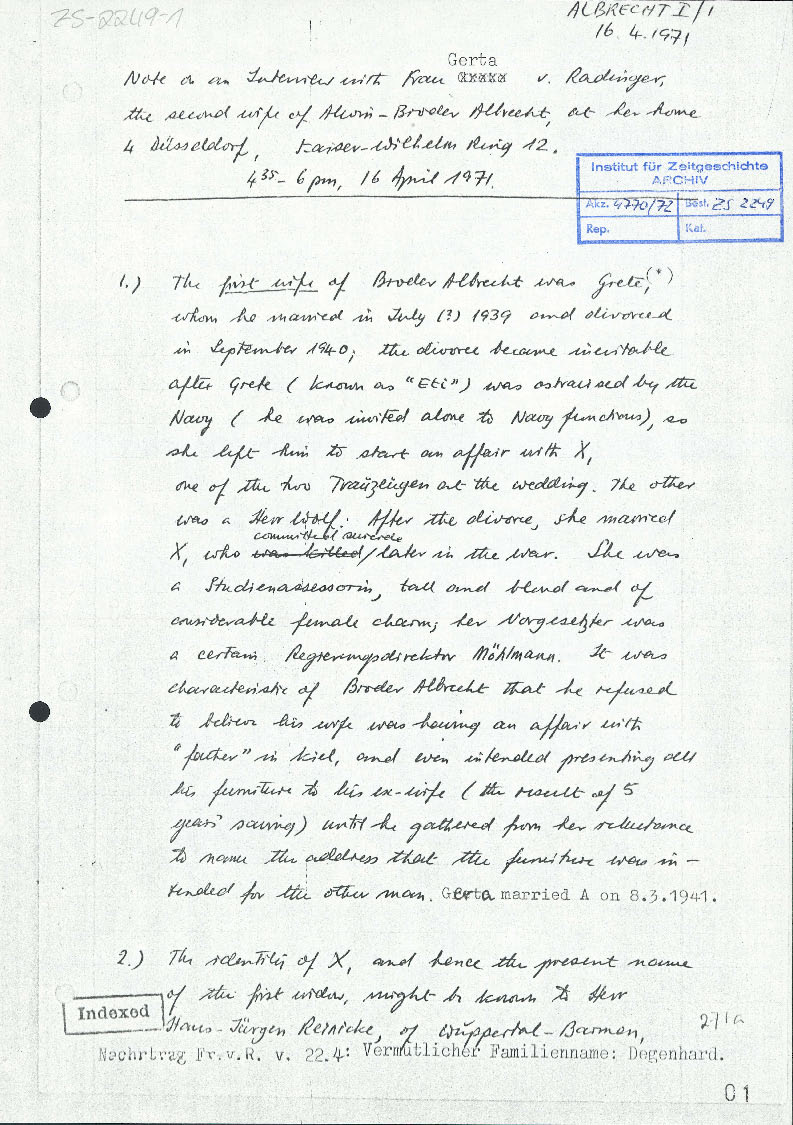 ZS-2249-1
ALBRECHT I/1
16. 4. 1971
Gerta
Note on an Interview with Frau xxxxx v. Radinger,
the second wife of Alwin-Broder Albrecht, at her home
4 Düsseldorf, Kaiser-Wilhelm Ring 12.
4³⁵ - 6 pm, 16 April 1971.
Institut für Zeitgeschichte
ARCHIV
Akz. 4770/72 Best. ZS 2249
Rep. Kat.
1.) The first wife of Broder Albrecht was Grete,(*)
whom he married in July (?) 1939 and divorced
in September 1940; the divorce became inevitable
after Grete ( known as "Eti") was ostracised by the
Navy ( he was invited alone to Navy functions), so
she left him to start an affair with X,
one of the two Trauzeugen at the wedding. The other
was a Herr Wolf. After the divorce, she married
committed suicide
X, who was killed/later in the war. She was
a Studienassessorin, tall and blond and of
considerable female charm; her Vorgesetzter was
a certain Regierungsdirektor Möhlmann. It was
characteristic of Broder Albrecht that he refused
to believe his wife was having an affair with
"father" in Kiel, and even intended presenting all
his furniture to his ex-wife ( the result of 5
years' saving) until he gathered from her reluctance
to name the address that the furniture was in-
tended for the other man. Gerta married A on 8.3.1941.
2.) The identity of X, and hence the present name
of the first widow, might be known to Herr
Indexed
Hans-Jürgen Reinicke, of Wuppertal-Barmen,
271a
Nachrtrag Fr.v.R. v. 22.4: Vermutlicher Familienname: Degenhard.
01